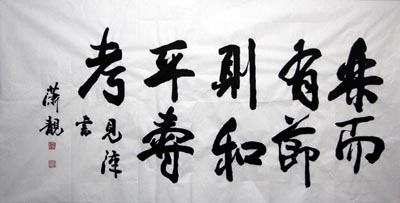 乐而
有節
則和
平壽
考
見漢
書
蕭靚